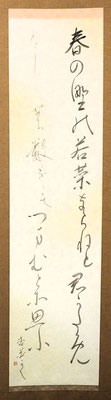 春の野の若菜ならねと君かため
としの数をもつまむとそ思ふ